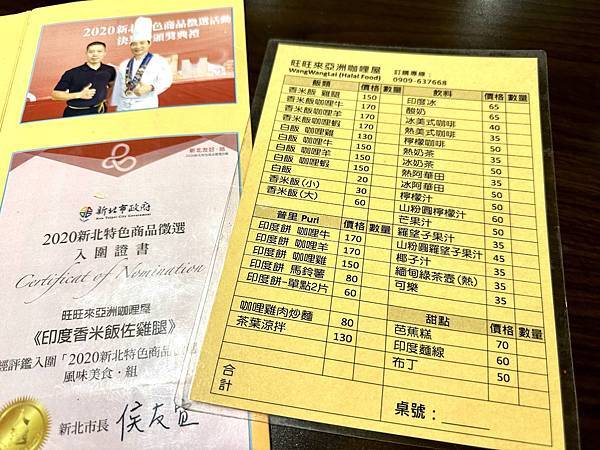 2020新北特色商品徵選活動
新北市政府
New Taipei City Government
2020新北特色商品徵選
入圍證書
Certificate of Nomination
旺旺來亞洲咖哩屋
《印度香米飯佐雞腿》
經評鑑入圍「2020新北特色商品
風味美食·組
新北市長 侯友宜
旺旺來亞洲咖哩屋 訂購專線：
WangWangLai (Halal Food) 0909-637668
飯類 價格 數量
香米飯 雞腿 150
香米飯咖哩牛 170
香米飯咖哩羊 170
香米飯咖哩蝦 170
白飯 咖哩雞 130
白飯 咖哩牛 150
白飯 咖哩羊 150
白飯 咖哩蝦 150
白飯 20
香米飯(小) 30
香米飯(大) 60
普里 Puri 價格 數量
印度餅 咖哩牛 170
印度餅 咖哩羊 170
印度餅 咖哩雞 150
印度餅 馬鈴薯 80
印度餅-單點2片 60
咖哩雞肉炒麵 80
茶葉涼拌 130
合計
飲料 價格 數量
印度冰 65
酸奶 65
冰美式咖啡 40
熱美式咖啡 35
檸檬咖啡 50
熱奶茶 35
冰奶茶 50
熱阿華田 35
冰阿華田 50
檸檬汁 50
山粉圓檸檬汁 60
芒果汁 50
羅望子果汁 35
山粉圓羅望子果汁 45
椰子汁 35
緬甸綠茶壺(熱) 35
可樂 35
甜點 價格 數量
芭蕉糕 70
印度麵線 60
布丁 50
桌號：